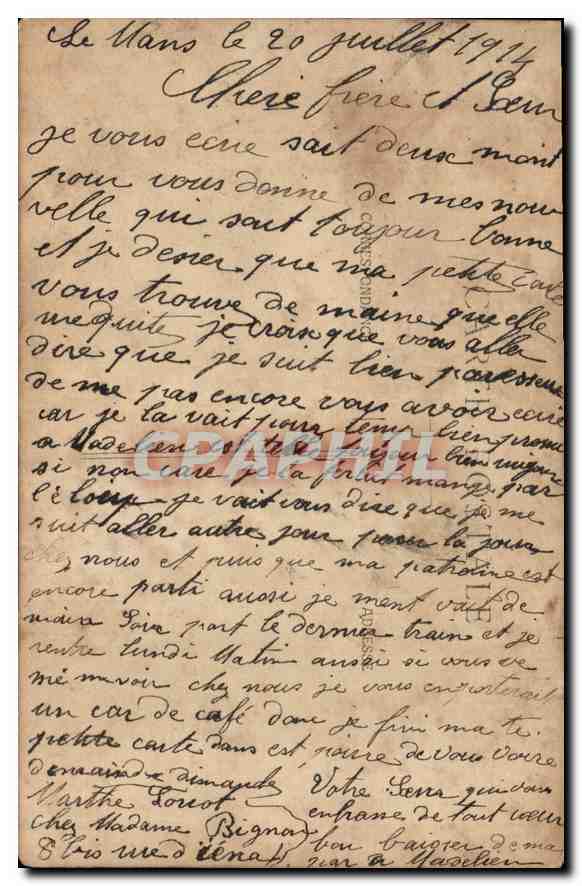 Le Mans le 20 juillet 1914
Chere frere et Sœur
je vous ecrie sait deux mont
pour vous donne de mes nou
velle qui sont toujour bonne
et je desier que ma petite carte
vous trouve de maime que elle
me quite je crois que vous aller
dire que je suit bien paresseuse
de me pas encore vous avoir ecrie
car je la vait pour tenr bien promi
a Madelien est telle toujour bien mignone
si non care je la ferait mange par
le loup je vait vous dire que je me
suit aller autre jour pour la jour
chez nous et puis que ma patronne est
encore parti aussi je ment vait de
main Soir part le dernier train et je
rentre lundi Matin aussi si vous ve
né me voir chez nous je vous enporterait
un car de café donc je fini ma te
petite carte dans est poire de vous voire
demain dimande
Votre Sœur qui vous
enbrasse de tout cœur
bon baiser de ma
par a Madelien
Marthe Loriot
chez Madame Bignon
8 bis rue d'iéna
CARTE POSTALE
CORRESPONDANCE
ADRESSE
CPAPHIL